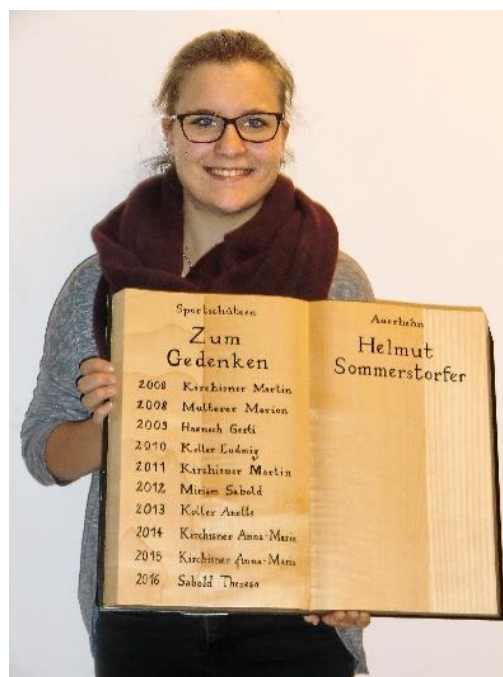 Sportschützen
Zum
Gedenken
2008 Kirchisner Martin
2008 Multerer Marion
2009 Haensch Gerti
2010 Koller Ludwig
2011 Kirchisner Martin
2012 Miriam Sabold
2013 Koller Anette
2014 Kirchisner Anna-Maria
2015 Kirchisner Anna-Maria
2016 Sabold Theresa
Auerhahn
Helmut
Sommerstorfer